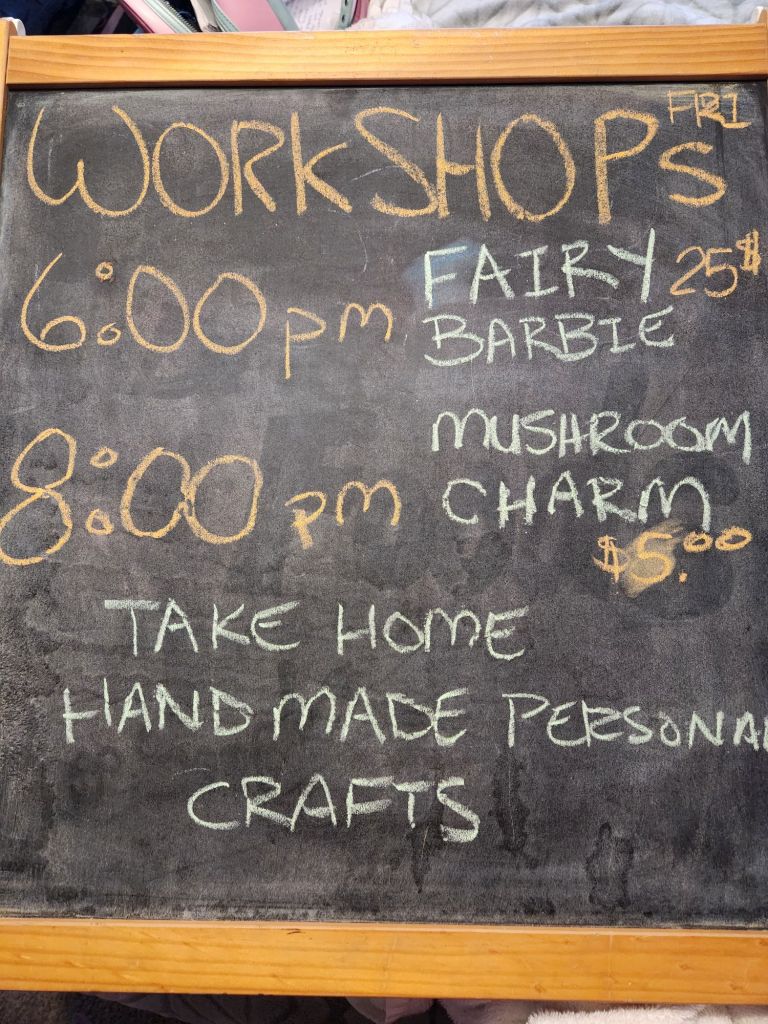 WORKSHOPS FRI
6:00 pm FAIRY 25$
BARBIE
MUSHROOM
8:00 pm CHARM
$5.00
TAKE HOME
HANDMADE PERSONA
CRAFTS